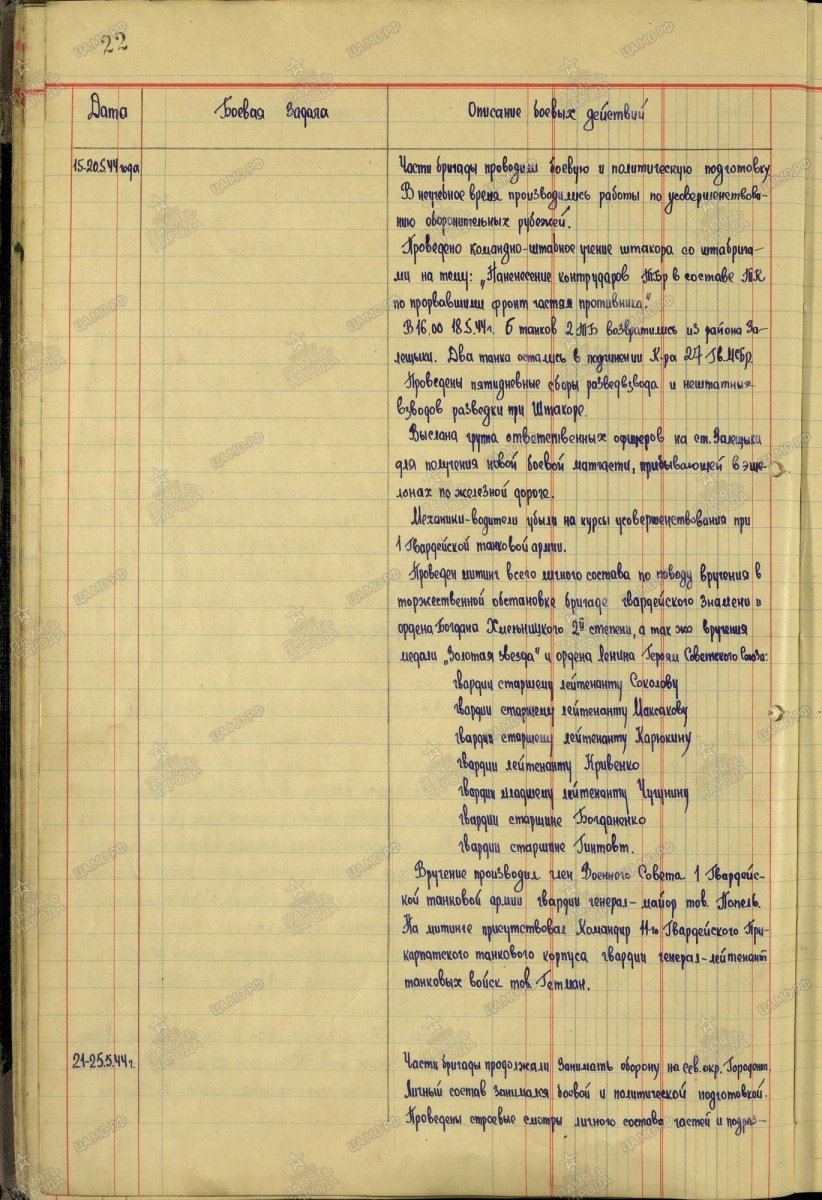 22
Дата Боевая задача Описание боевых действий
15-20.5.44 года Части бригады проводили боевую и политическую подготовку
В неучебное время производились работы по усовершенствова-
нию оборонительных рубежей.
Проведено командно-штабное учение штакора со штабрига-
ми на тему: „Наненесение контрударов ТБр в составе ТК
по прорвавшими фронт частям противника."
В 16.00 18.5.44г. 6 танков 2 ТБ возвратились из района За-
лещыки. Два танка остались в подчинении К-ра 27 Гв.МСБр.
Проведены пятидневные сборы разведвзвода и нештатных
взводов разведки при Штакоре.
Выслана группа ответственных офицеров на ст. Залещыки
для получения новой боевой матчасти, прибывающей в эше-
лонах по железной дороге.
Механики-водители убыли на курсы усовершенствования при
1 Гвардейской танковой армии.
Проведен митинг всего личного состава по поводу вручения в
торжественной обстановке бригаде гвардейского знамени и
ордена Богдана Хмельницкого 2й степени, а так же вручения
медали „Золотая звезда" и ордена Ленина Героям Советского Союза:
гвардии старшему лейтенанту Соколову
гвардии старшему лейтенанту Максакову
гвардии старшему лейтенанту Карюкину
гвардии лейтенанту Кривенко
гвардии младшему лейтенанту Чугунину
гвардии старшине Богданенко
гвардии старшине Гинтовт.
Вручение производил член Военного Совета 1 Гвардейс-
кой танковой армии гвардии генерал-майор тов. Попель.
На митинге присутствовал Командир 11-го Гвардейского При-
карпатского танкового корпуса гвардии генерал-лейтенант
танковых войск тов. Гетман.
21-25.5.44 г. Части бригады продолжали занимать оборону на сев. окр. Городенка.
Личный состав занимался боевой и политической подготовкой.
Проведены строевые смотры личного состава частей и подраз-